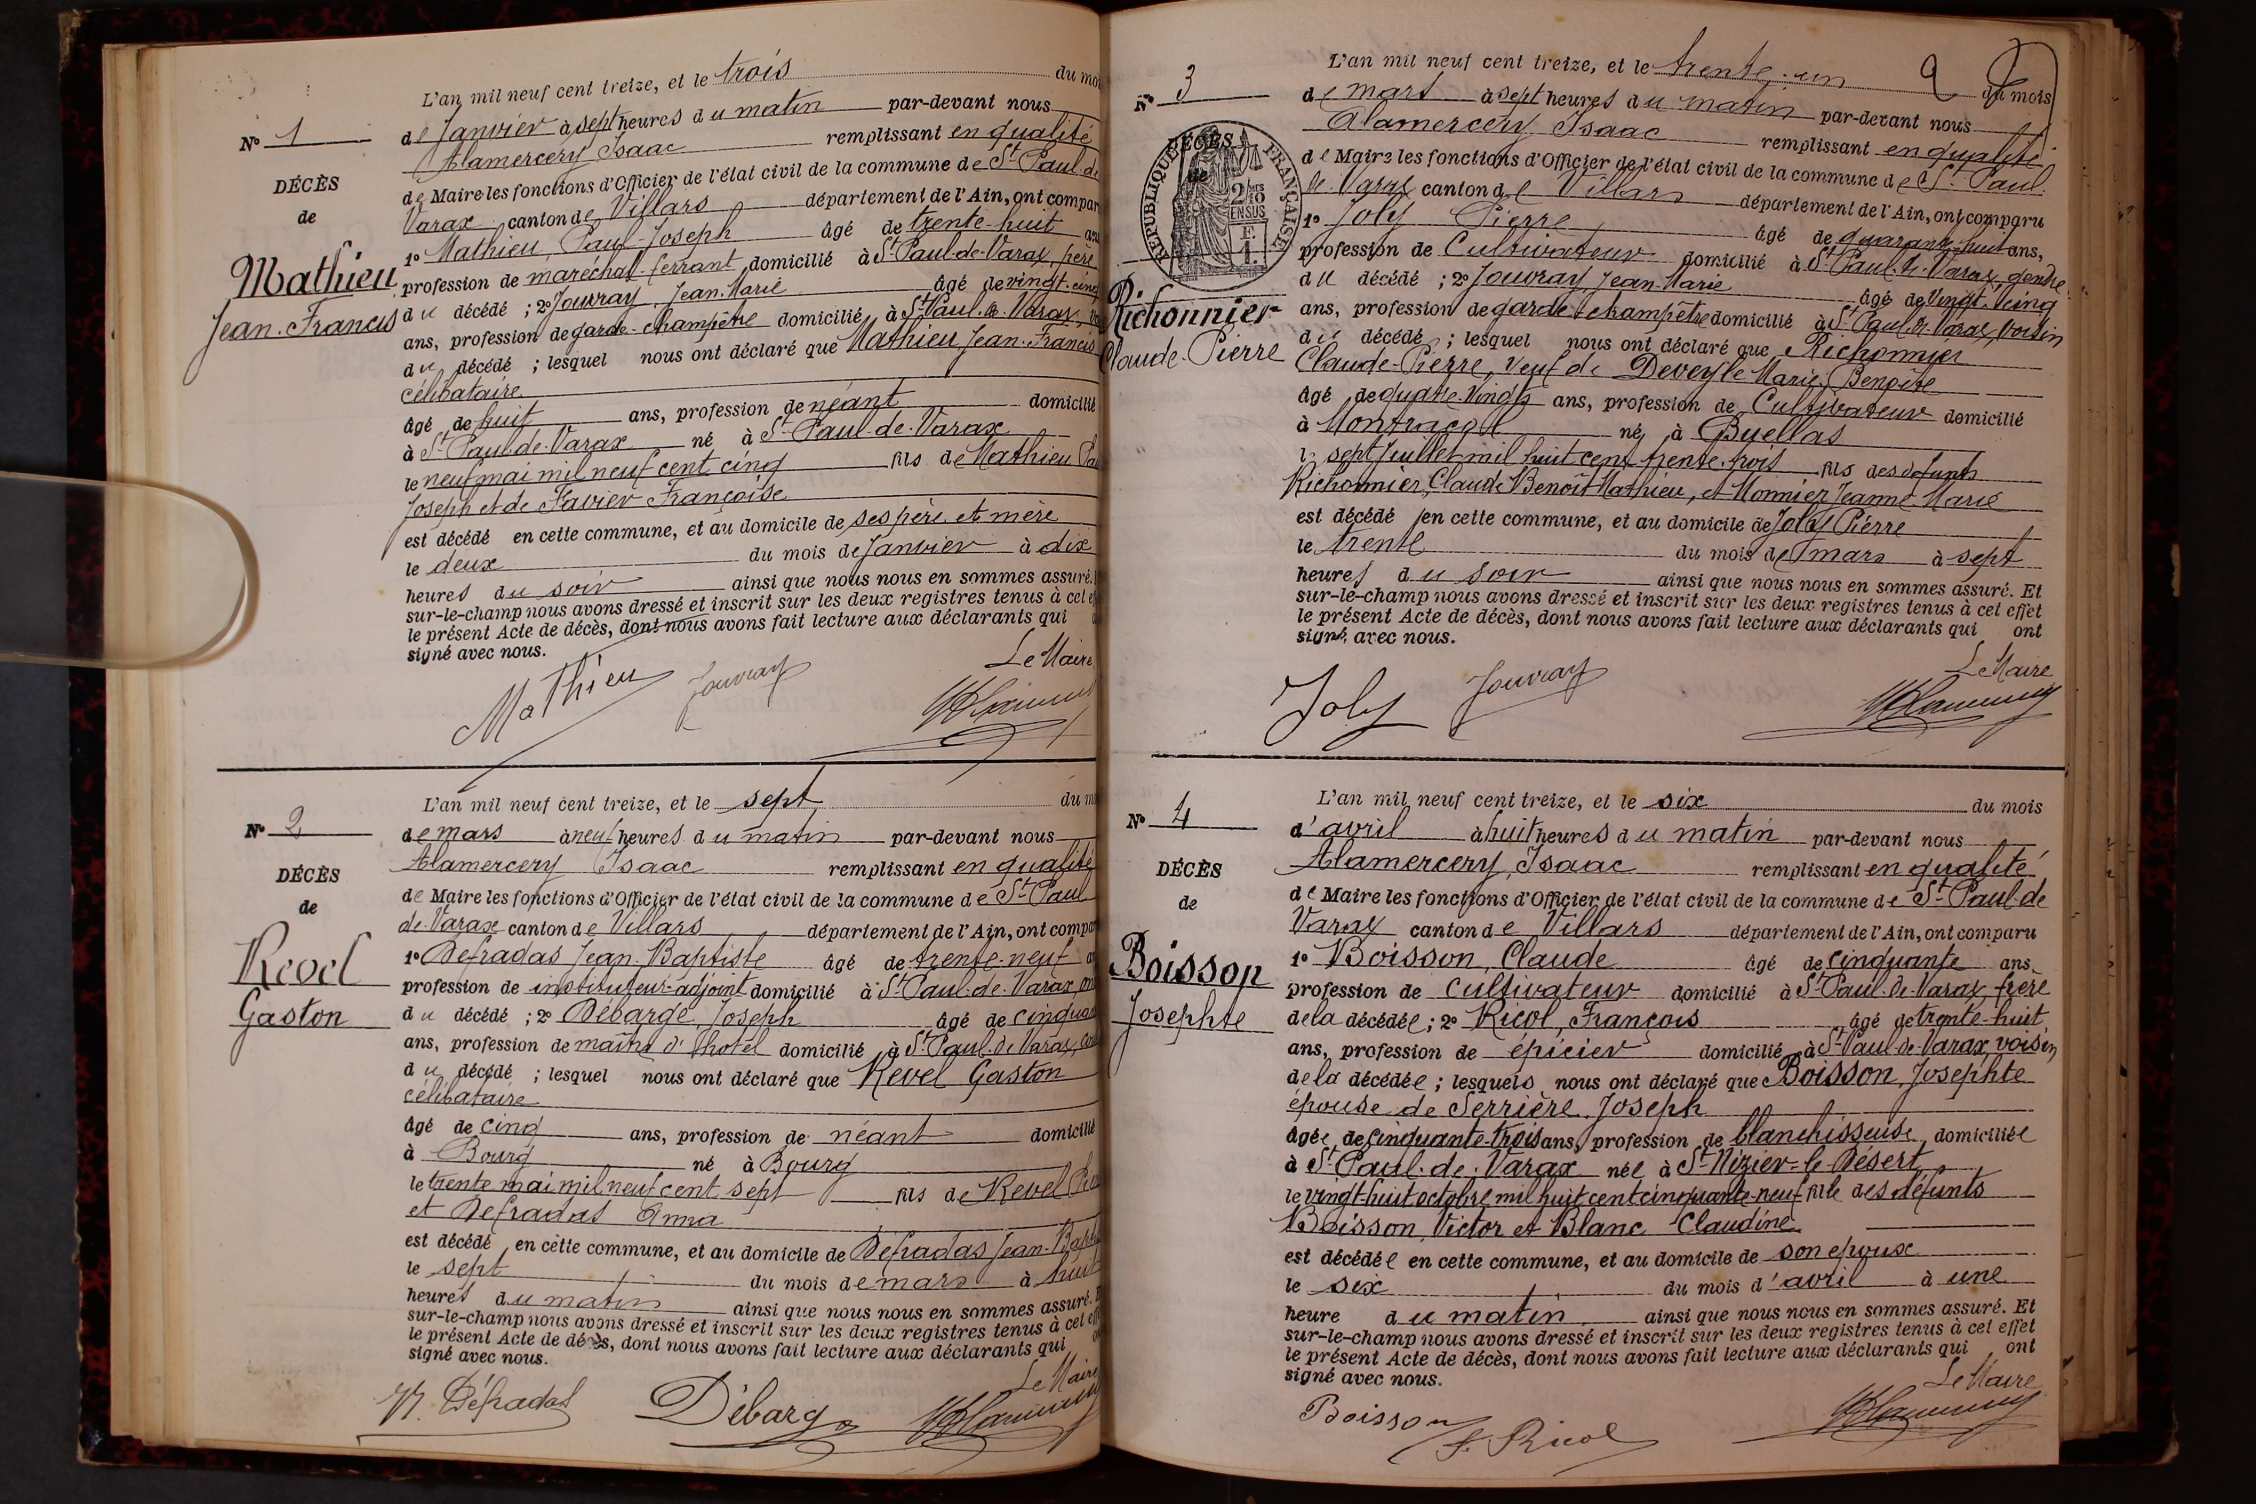 L'an mil neuf cent treize, et le trois du mo
Nº 1
de Janvier à sept heures du matin par-devant nous
Alamercery Isaac remplissant en qualité
DÉCÈS
de Maire les fonctions d'Officier de l'état civil de la commune de St Paul de
de
Varax canton de Villars département de l'Ain, ont compar
1º Mathieu, Paul Joseph âgé de trente-huit ans
Mathieu
profession de maréchal-ferrant domicilié à St Paul-de-Varax, père
Jean-Francis
du décédé ; 2º Jouvray, Jean-Marie âgé de vingt-cinq
ans, profession de garde-champêtre domicilié à St Paul-de-Varax,
du décédé ; lesquel nous ont déclaré que Mathieu Jean-Francis
célibataire
âgé de huit ans, profession de néant domicilié
à St Paul-de-Varax né à St Paul-de-Varax
le neuf mai mil neuf cent cinq fils de Mathieu Pa
Joseph et de Favier Françoise
est décédé en cette commune, et au domicile de ses père et mère
le deux du mois de Janvier à dix
heures du soir ainsi que nous nous en sommes assuré.
sur-le-champ nous avons dressé et inscrit sur les deux registres tenus à cet e
le présent Acte de décès, dont nous avons fait lecture aux déclarants qui
signé avec nous.
Le Maire
Mathieu Jouvray
L'an mil neuf cent treize, et le sept du m
Nº 2
de mars à neuf heures du matin par-devant nous
Alamercery Isaac remplissant en qualité
DÉCÈS
de Maire les fonctions d'Officier de l'état civil de la commune de St Paul
de
de Varax canton de Villars département de l'Ain, ont compar
1º Defradas Jean-Baptiste âgé de trente-neuf an
Revel
profession de instituteur-adjoint domicilié à St Paul-de-Varax, on
Gaston
du décédé ; 2º Débarge, Joseph âgé de cinquan
ans, profession de maître d'hôtel domicilié à St Paul-de-Varax,
du décédé ; lesquel nous ont déclaré que Revel Gaston
célibataire
âgé de cinq ans, profession de néant domicilié
à Bourg né à Bourg
le trente mai mil neuf cent sept fils de Revel
et Defradas Anna
est décédé en cette commune, et au domicile de Defradas Jean-Bapt
le sept du mois de mars à huit
heures du matin ainsi que nous nous en sommes assuré. E
sur-le-champ nous avons dressé et inscrit sur les deux registres tenus à cet eff
le présent Acte de décès, dont nous avons fait lecture aux déclarants qui
signé avec nous.
Le Maire
Défradas Débarge
L'an mil neuf cent treize, et le trente-un du mois
Nº 3
de mars à sept heures du matin par-devant nous
Alamercery Isaac remplissant en qualité
DÉCÈS
de
RÉPUBLIQUE FRANÇAISE
de Maire les fonctions d'Officier de l'état civil de la commune de St Paul
de Varax canton de Villars département de l'Ain, ont comparu
1º Joly Pierre âgé de quarante-huit ans,
profession de Cultivateur domicilié à St Paul-de-Varax, gendre
Richonnier
Claude-Pierre
du décédé ; 2º Jouvray, Jean-Marie âgé de Vingt-cinq
ans, profession de garde-champêtre domicilié à St Paul-de-Varax, voisin
du décédé ; lesquel nous ont déclaré que Richonnier
Claude-Pierre, veuf de Deveyle Marie, Benoîte
âgé de quatre-vingts ans, profession de Cultivateur domicilié
à Montracol né à Buellas
le sept Juillet mil huit cent trente-trois fils des défunts
Richonnier, Claude Benoit Mathieu, et Monnier Jeanne Marie
est décédé en cette commune, et au domicile de Joly Pierre
le trente du mois de mars à sept
heures du soir ainsi que nous nous en sommes assuré. Et
sur-le-champ nous avons dressé et inscrit sur les deux registres tenus à cet effet
le présent Acte de décès, dont nous avons fait lecture aux déclarants qui ont
signé avec nous.
Le Maire
Joly Jouvray
L'an mil neuf cent treize, et le six du mois
Nº 4
d'avril à huit heures du matin par-devant nous
Alamercery, Isaac remplissant en qualité
DÉCÈS
de Maire les fonctions d'Officier de l'état civil de la commune de St Paul-de
de
Varax canton de Villars département de l'Ain, ont comparu
1º Boisson, Claude âgé de cinquante ans,
Boisson
profession de cultivateur domicilié à St Paul-de-Varax, frère
Josephte
de la décédée ; 2º Ricol, François âgé de trente-huit
ans, profession de épicier domicilié à St Paul-de-Varax, voisin
de la décédée ; lesquels nous ont déclaré que Boisson, Josephte
épouse de Serrière, Joseph
âgée de cinquante-trois ans, profession de blanchisseuse, domiciliée
à St Paul-de-Varax née à St Nizier-le-Désert
le vingt-huit octobre mil huit cent cinquante-neuf fille des défunts
Boisson, Victor et Blanc Claudine
est décédée en cette commune, et au domicile de son epoux
le six du mois d'avril à une
heure du matin ainsi que nous nous en sommes assuré. Et
sur-le-champ nous avons dressé et inscrit sur les deux registres tenus à cet effet
le présent Acte de décès, dont nous avons fait lecture aux déclarants qui ont
signé avec nous.
Le Maire
Boisson F. Ricol